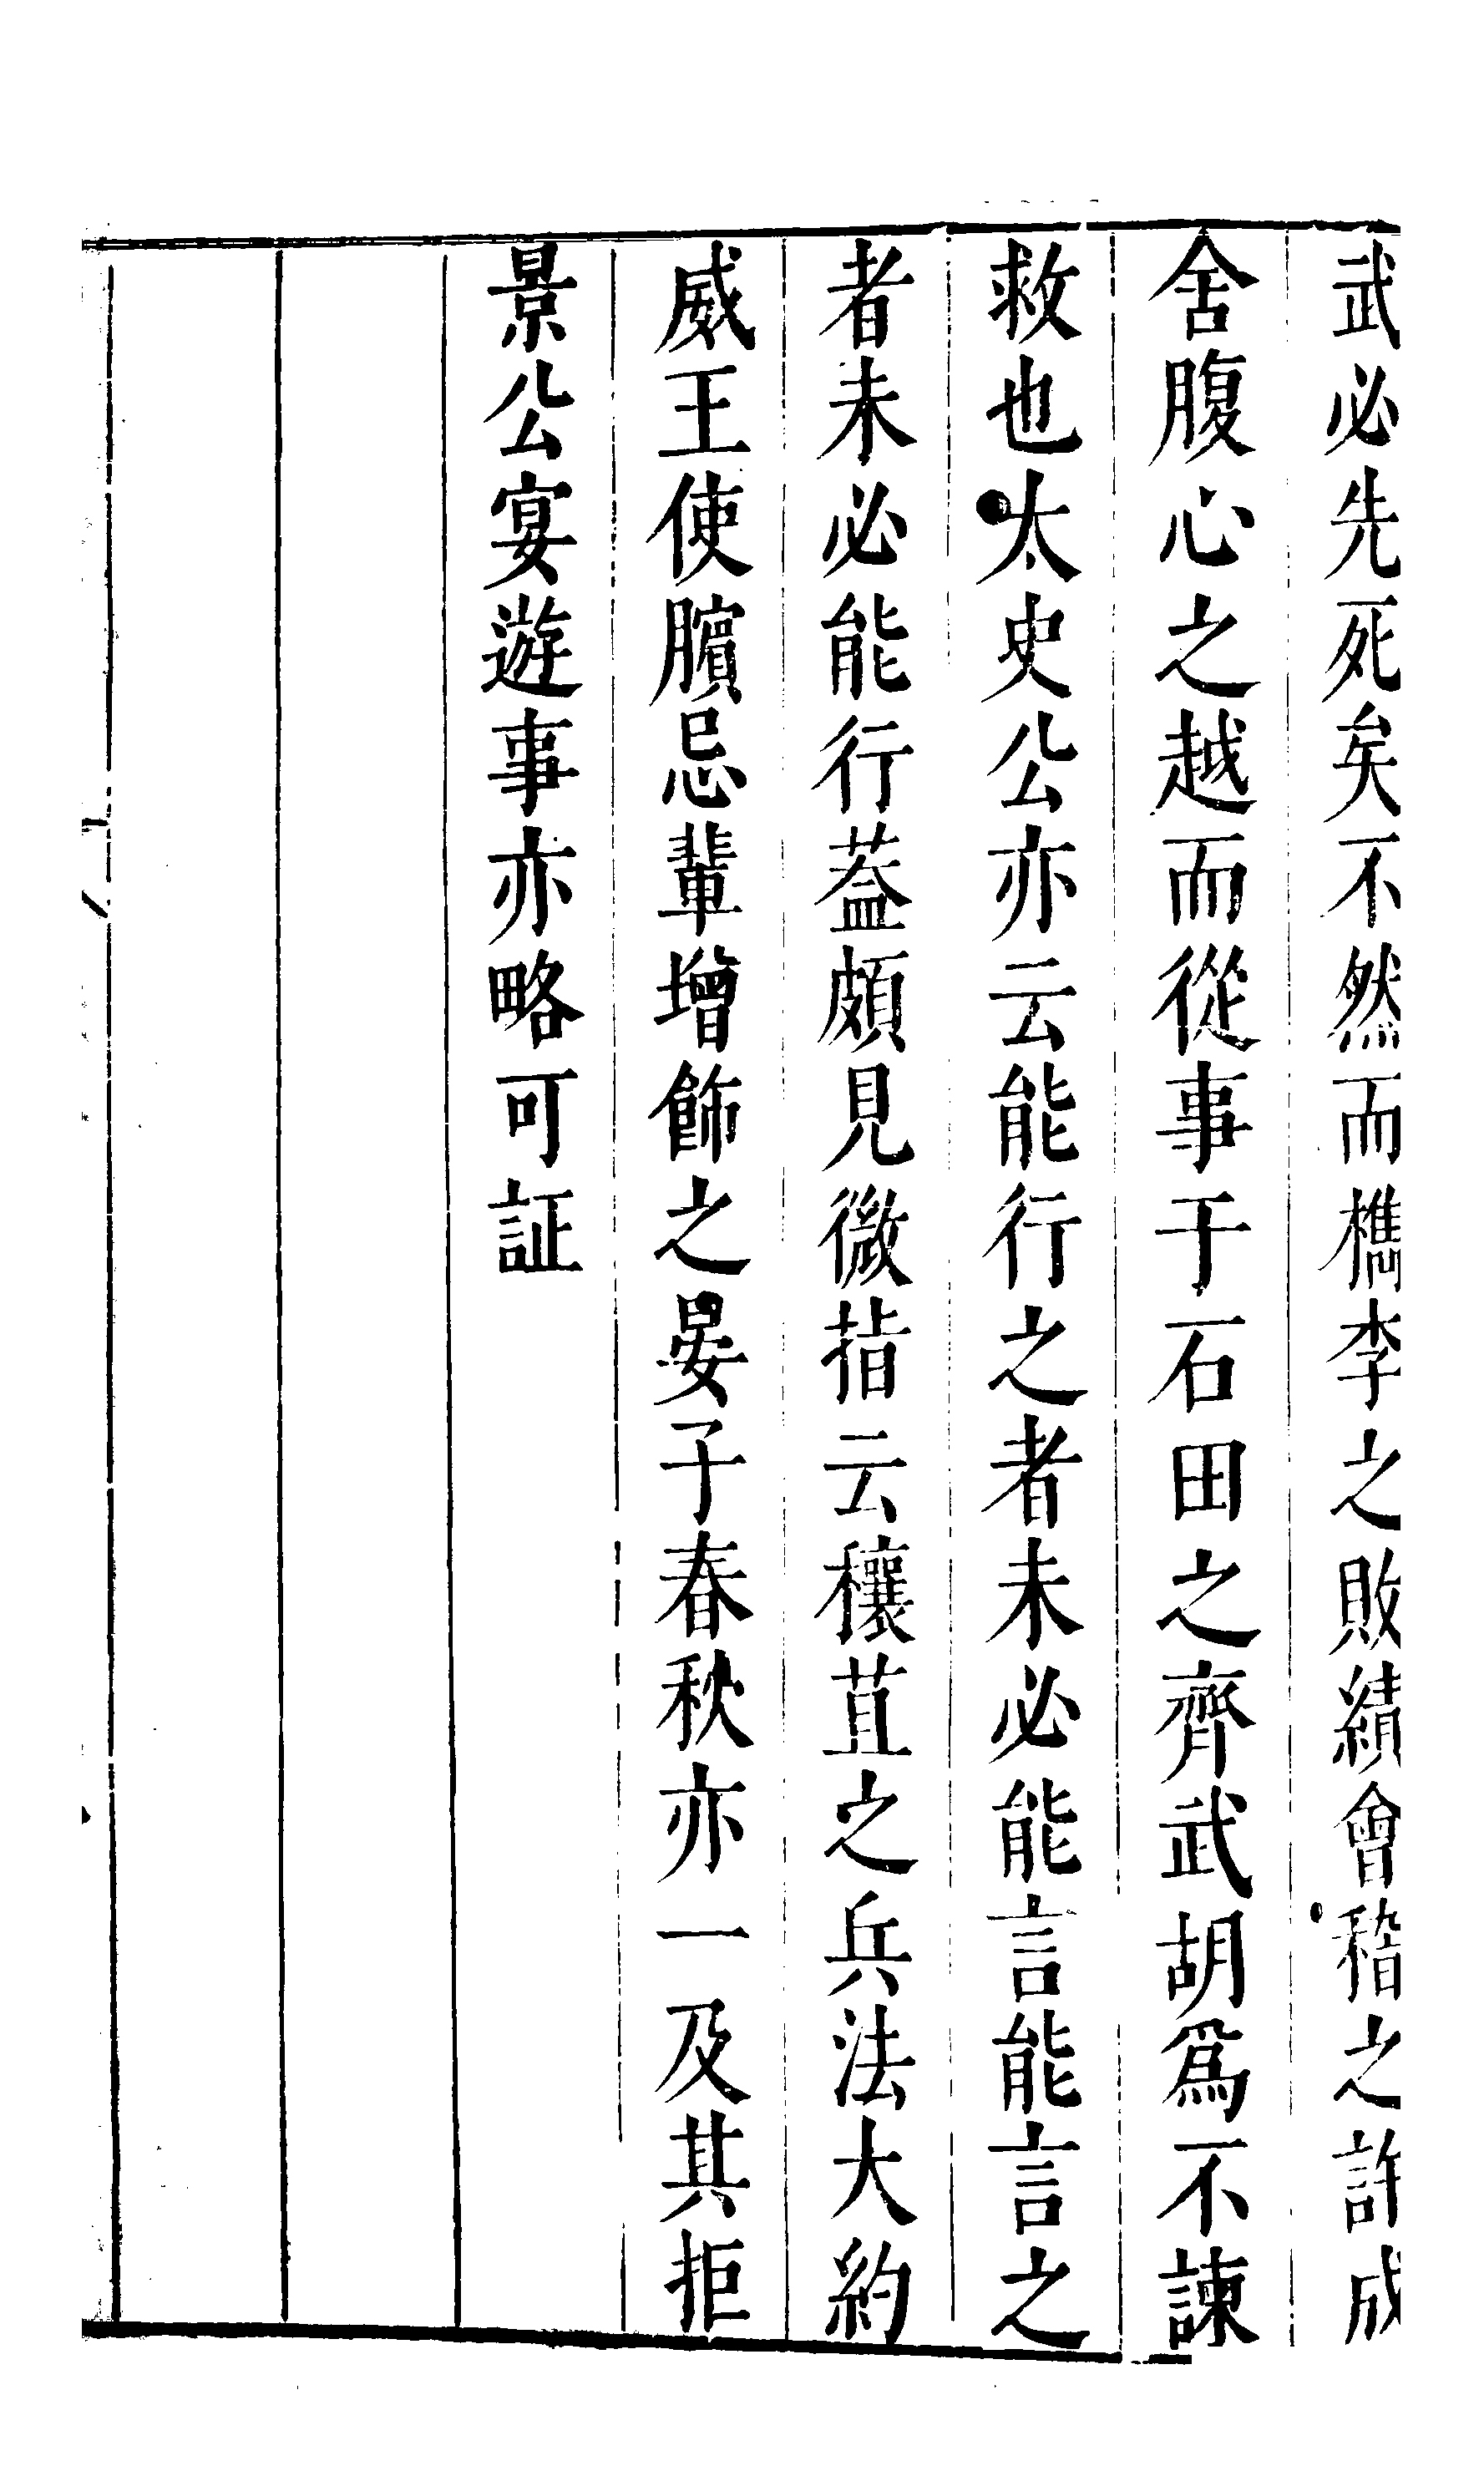 武必先死矣不然而檇李之敗績會稽之許成
舍腹心之越而從事于石田之齊武胡爲不諫
救也太史公亦云能行之者未必能言能言之
者未必能行葢頗見微指云穰苴之兵法大約
威王使臏忌輩增飾之晏子春秋亦一及其拒
景公宴遊事亦略可証